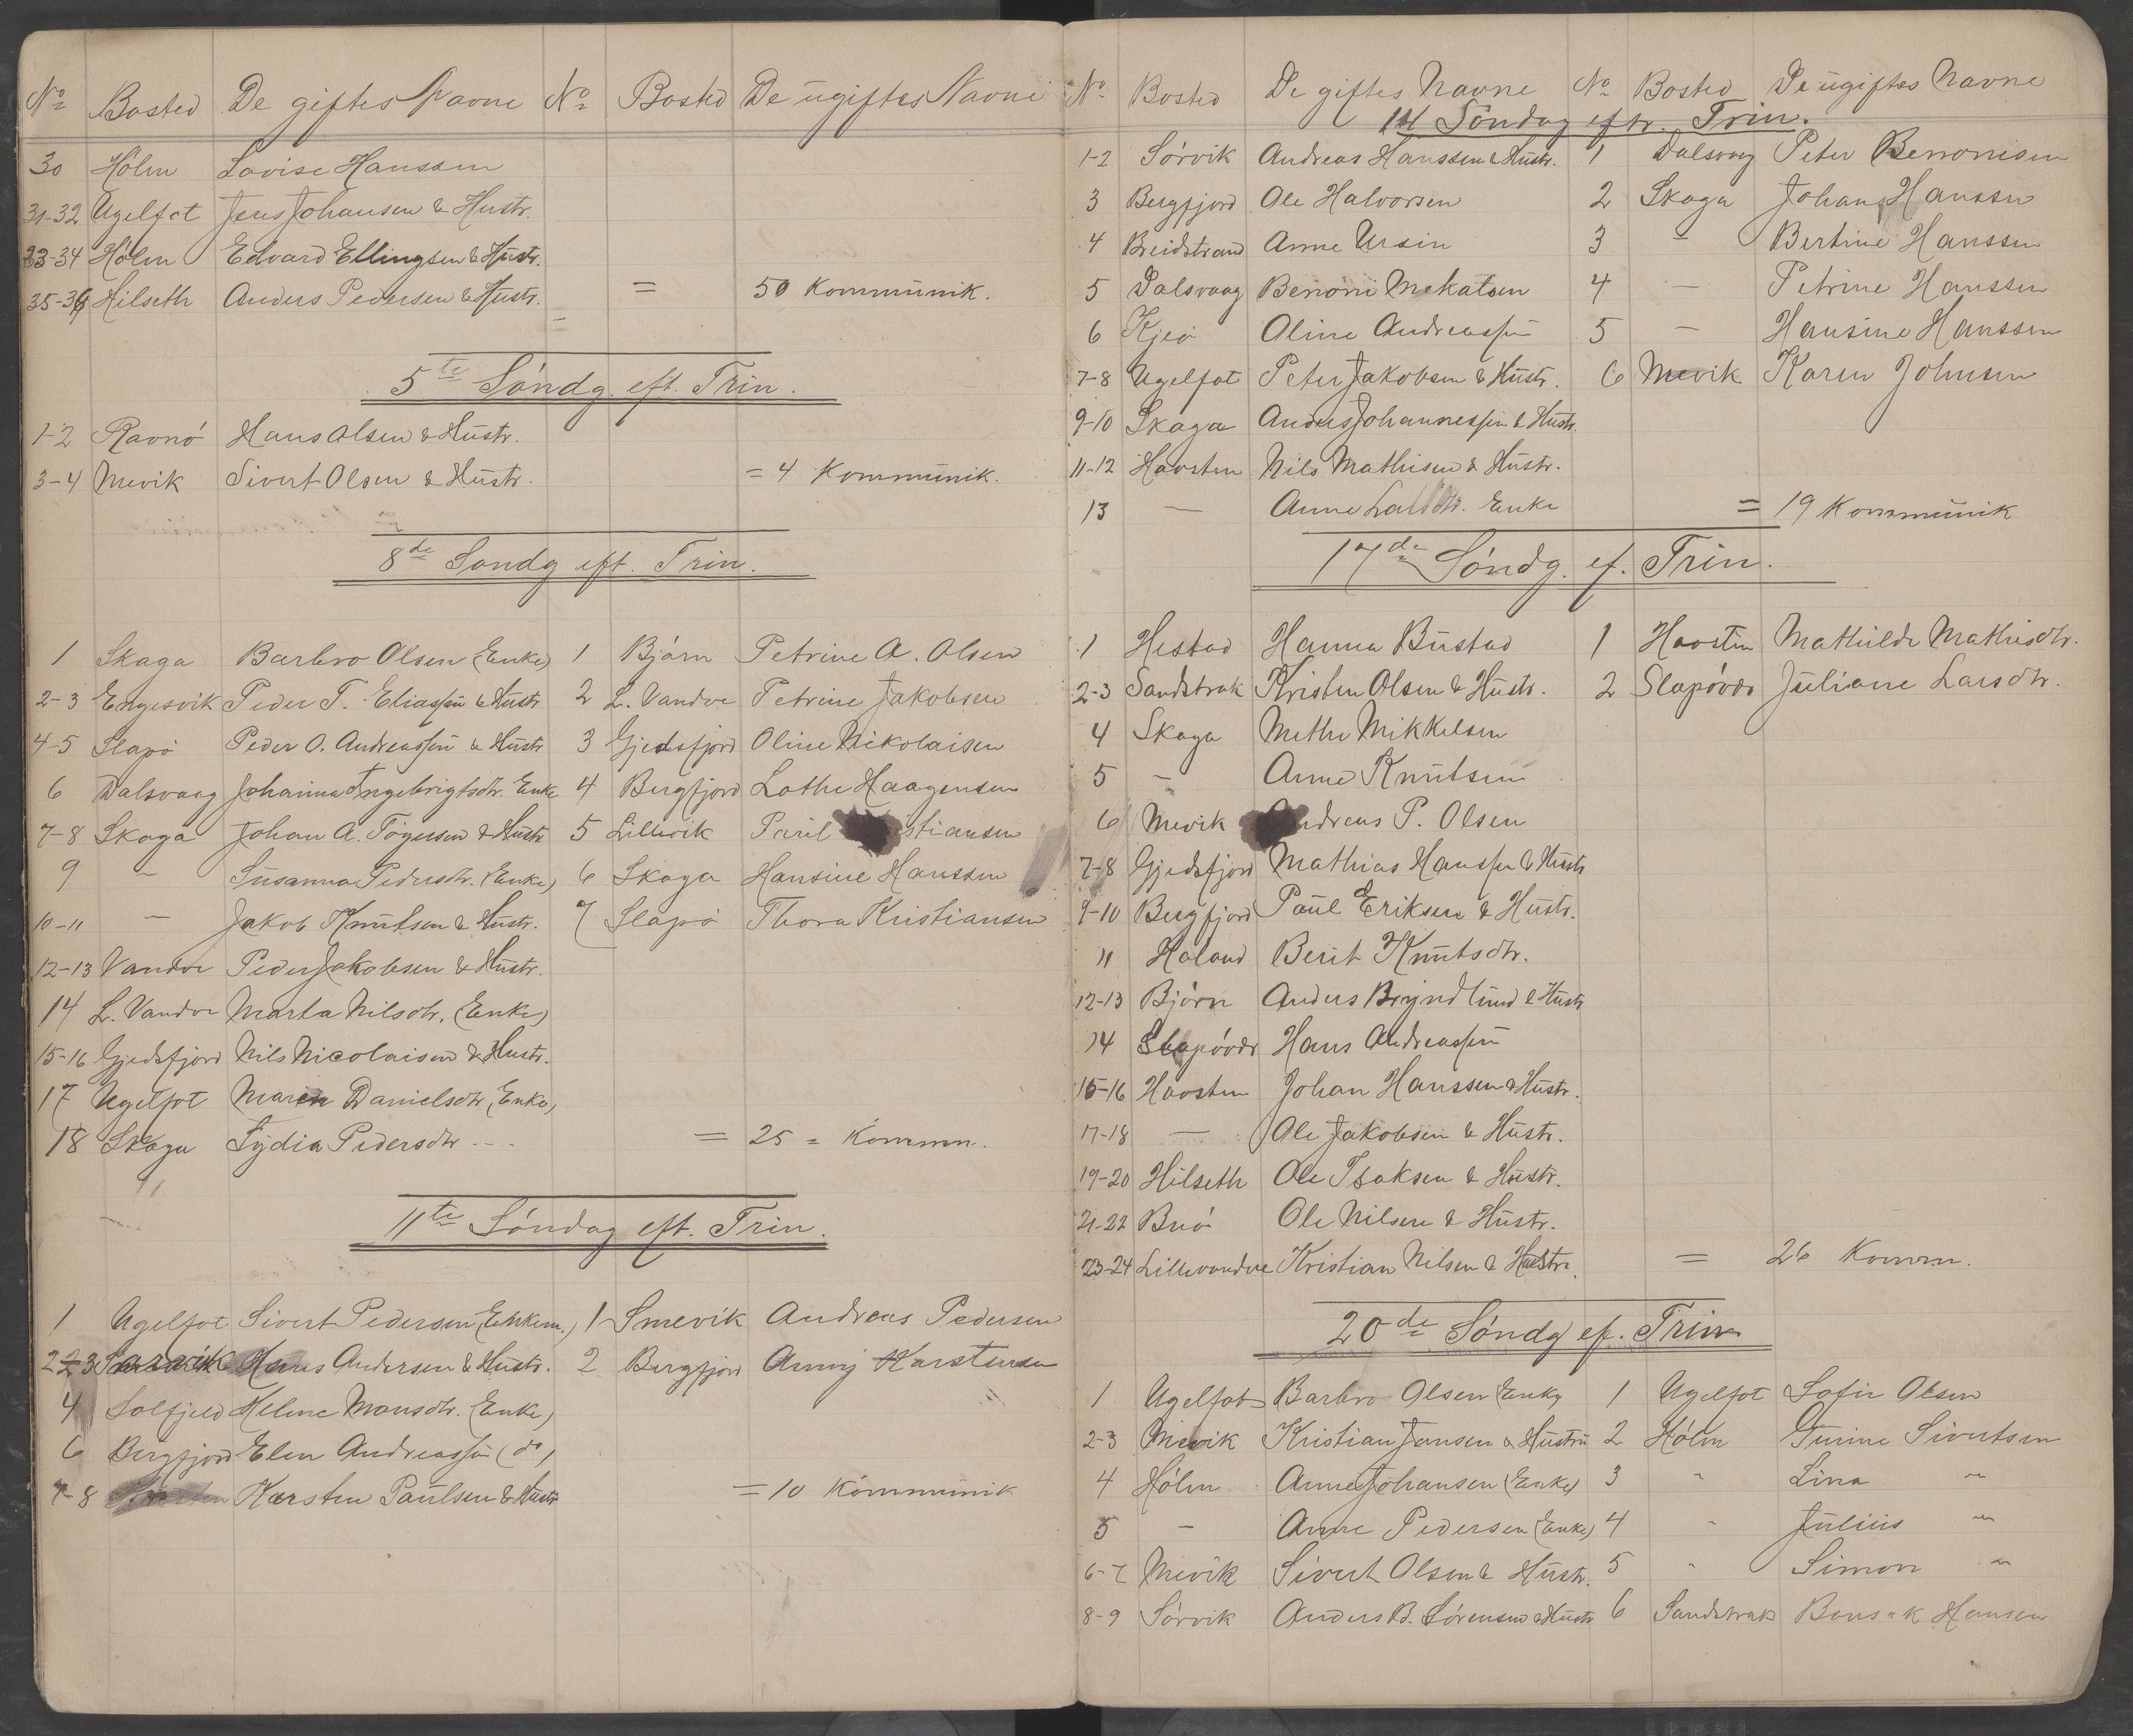 No Bosted De giftes Navne No Bosted De ugiftes Navne
30 Hölm Lovise Hanssen
31-32 Ugelfot Jens Johansen & Hustr.
33-34 Hölm Edvard Ellingsen & Hustr.
35-36 Hilseth Anders Pedersen & Hustr. = 50 Kommunik.
5te Söndg. eft. Trin.
1-2 Ravnö Hans Olsen & Hustr.
3-4 Mevik Sivert Olsen & Hustr. = 4 Kommunik.
8de Sondg eft. Trin.
1 Skaga Barbro Olsen (Enke) 1 Björn Petrine A. Olsen
2-3 Engesvik Peder T. Eliassen & Hustr 2 L. Vandve Petrine Jakobsen
4-5 Slapö Peder O. Andreassen & Hustr 3 Gjedsfjord Oline Nikolaisen
6 Dalsvaag Johanna Ingebrigtsdtr. Enke 4 Bergfjord Lothe Haagensen
7-8 Skaga Johan A. Togersen & Hustr 5 Lillevik Paul stiansen
9 - Susanna Pedersdtr. (Enke) 6 Skaga Hansine Hanssen
10-11 - Jakob Knutsen & Hustr. 7 Slapö Thora Kristiansen
12-13 Vandve Peder Jakobsen & Hustr.
14 L. Vandve Marta Nilsdtr. (Enke)
15-16 Gjedsfjord Nils Nicolaisen & Hustr.
17 Ugelfot Maren Danielsdtr (Enke)
18 Skaga Lydia Pedersdtr - - . = 25 = Komm.
11te Söndag eft. Trin.
1 Ugelfot Sivert Pedersen (Enkem.) 1 Smevik Andreas Pedersen
2-3 Hans Andersen & Hustr. 2 Bergfjord Anny Karstensen
4 Solfjeld Helene Monsdtr. (Enke)
6 Bergfjord Elen Andreassen (do)
7-8 Karsten Paulsen & Hustr = 10 Kommunik
No Bosted De giftes Navne No Bosted De ugiftes Navne
14 Söndag eftr. Trin.
1-2 Sörvik Andreas Hanssen & Hustr. 1 Dalsvaag Peter Benonisen
3 Bergfjord Ole Halvorsen 2 Skaga Johan Hanssen
4 Breidstrand Anne Ursin 3 - Bertine Hanssen
5 Dalsvaag Benoni Mekatsen 4 - Petrine Hanssen
6 Kjeö Oline Andreassen 5 - Hansine Hanssen
7-8 Ugelfot Peter Jakobsen & Hustr. 6 Mevik Karen Johnsen
9-10 Skaga Anders Johannessen & Hustr.
11-12 Havsten Nils Mathisen & Hustr.
13 - Anne Larsdtr. Enke = 19 Kommunik
17de Söndg. ef. Trin.
1 Hestad Hanna Bustad 1 Havsten Mathilde Mathisdtr.
2-3 Sandstrak Kristen Olsen & Hustr. 2 Slapövær Juliane Larsdtr.
4 Skaga Methe Mikkelsen
5 - Anne Knutsen
6 Mevik Andreas P. Olsen
7-8 Gjedsfjord Mathias Hanssen & Hustr
9-10 Bergfjord Paul Eriksen & Hustr.
11 Haland Berit Knutsdtr.
12-13 Björn Anders Bryndlund & Hustr
14 Slapövær Hans Andreassen
15-16 Havsten Johan Hanssen & Hustr.
17-18 - Ole Jakobsen & Hustr.
19-20 Hilseth Ole Isaksen & Hustr.
21-22 Buö Ole Nilsen & Hustr.
23-24 Lillevandve Kristian Nilsen & Hustr. = 26 Komm.
20de Söndg ef. Trin
1 Ugelfot Barbro Olsen Enke 1 Ugelfot Sofie Olsen
2-3 Mevik Kristian Jansen & Hustru 2 Hölm Gurine Sivertsen
4 Hölm Anne Johansen (Enke) 3 " Lina "
5 - Anne Pedersen (Enke) 4 " Julius "
6-7 Mevik Sivert Olsen & Hustr. 5 " Simon "
8-9 Sörvik Anders B. Sörensen & Hustr 6 Sandstrak Bonsak Hansen